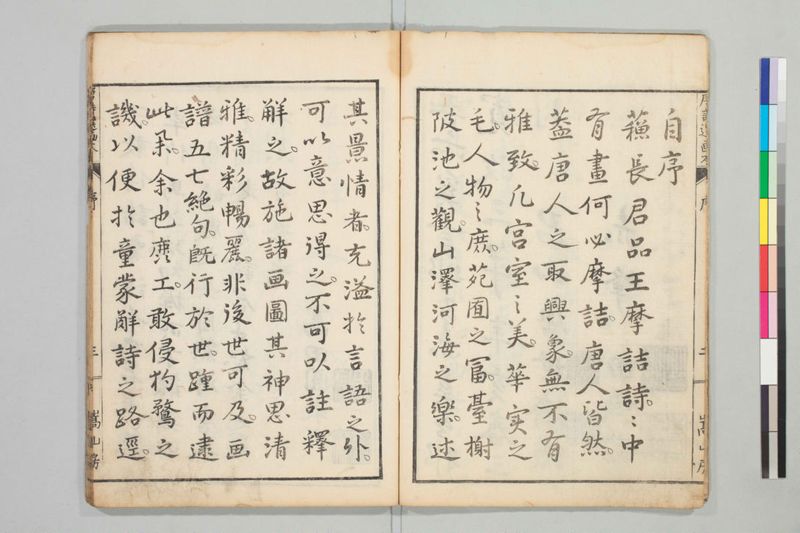 自序
蘓長君品王摩詰詩〻中
有畫何必摩詰唐人皆然
葢唐人之取興象無不有
雅致凢宫室〻美華実之
毛人物〻庶苑囿之冨臺榭
陂池之觀山澤河海之樂述
其景情者充溢於言語之外
可以意思得之不可以註釋
解之故施諸画圖其神思清
雅精彩暢麗非後世可及画
譜五七絶句既行於世踵而逮
此余也
工敢侵
之
譏以便於童蒙觧詩之路逕
序
三
嵩山房